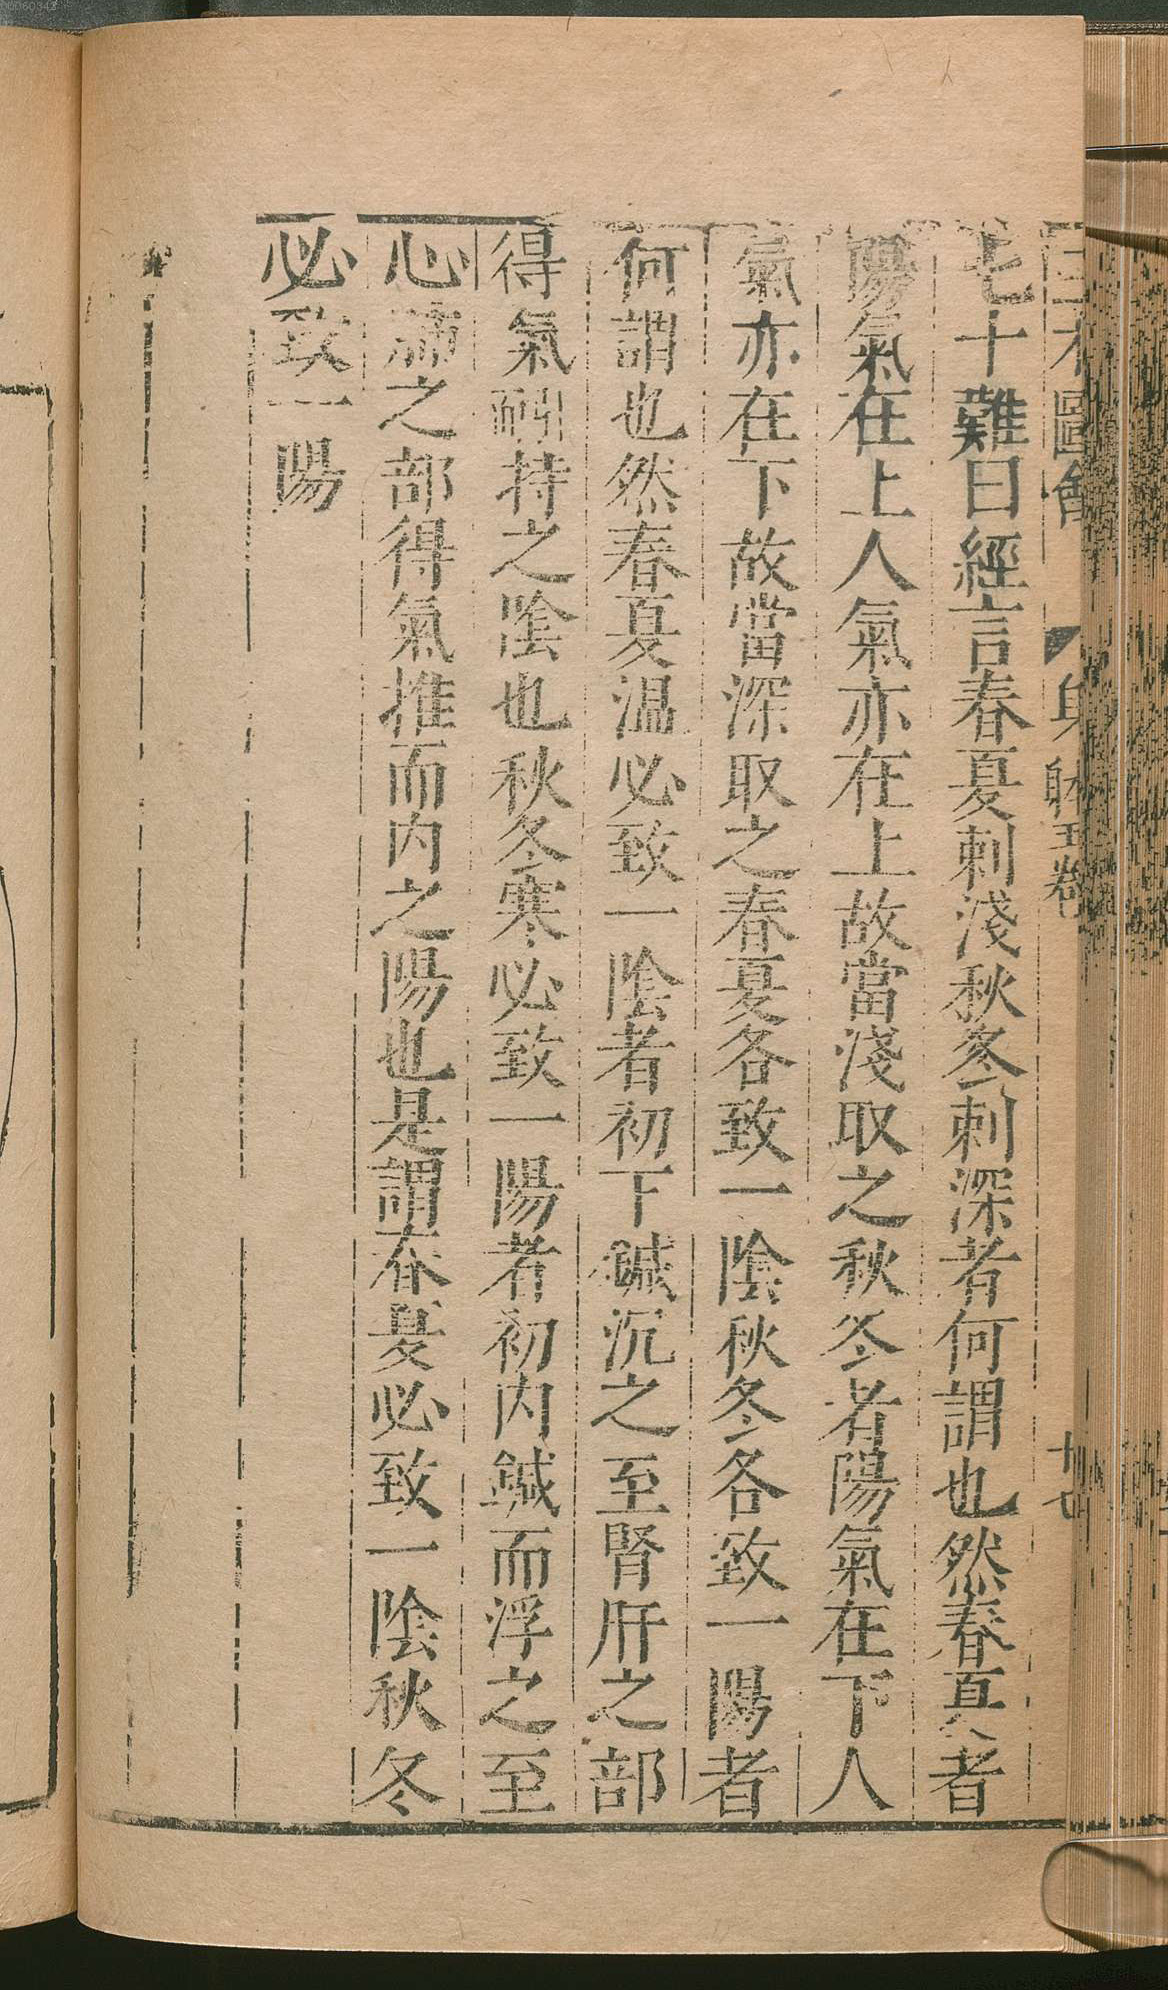 三才圖會
身體五卷
十七
七十難曰經言春夏刺淺秋冬刺深者何謂也然春夏者
陽氣在上人氣亦在上故當淺取之秋冬者陽氣在下人
氣亦在下故當深取之春夏各致一陰秋冬各致一陽者
何謂也然春夏温必致一陰者初下鍼沉之至腎肝之部
得氣引持之陰也秋冬寒必致一陽者初内鍼而浮之至
心肺之部得氣推而内之陽也是謂春夏必致一陰秋冬
必致一陽
00060343